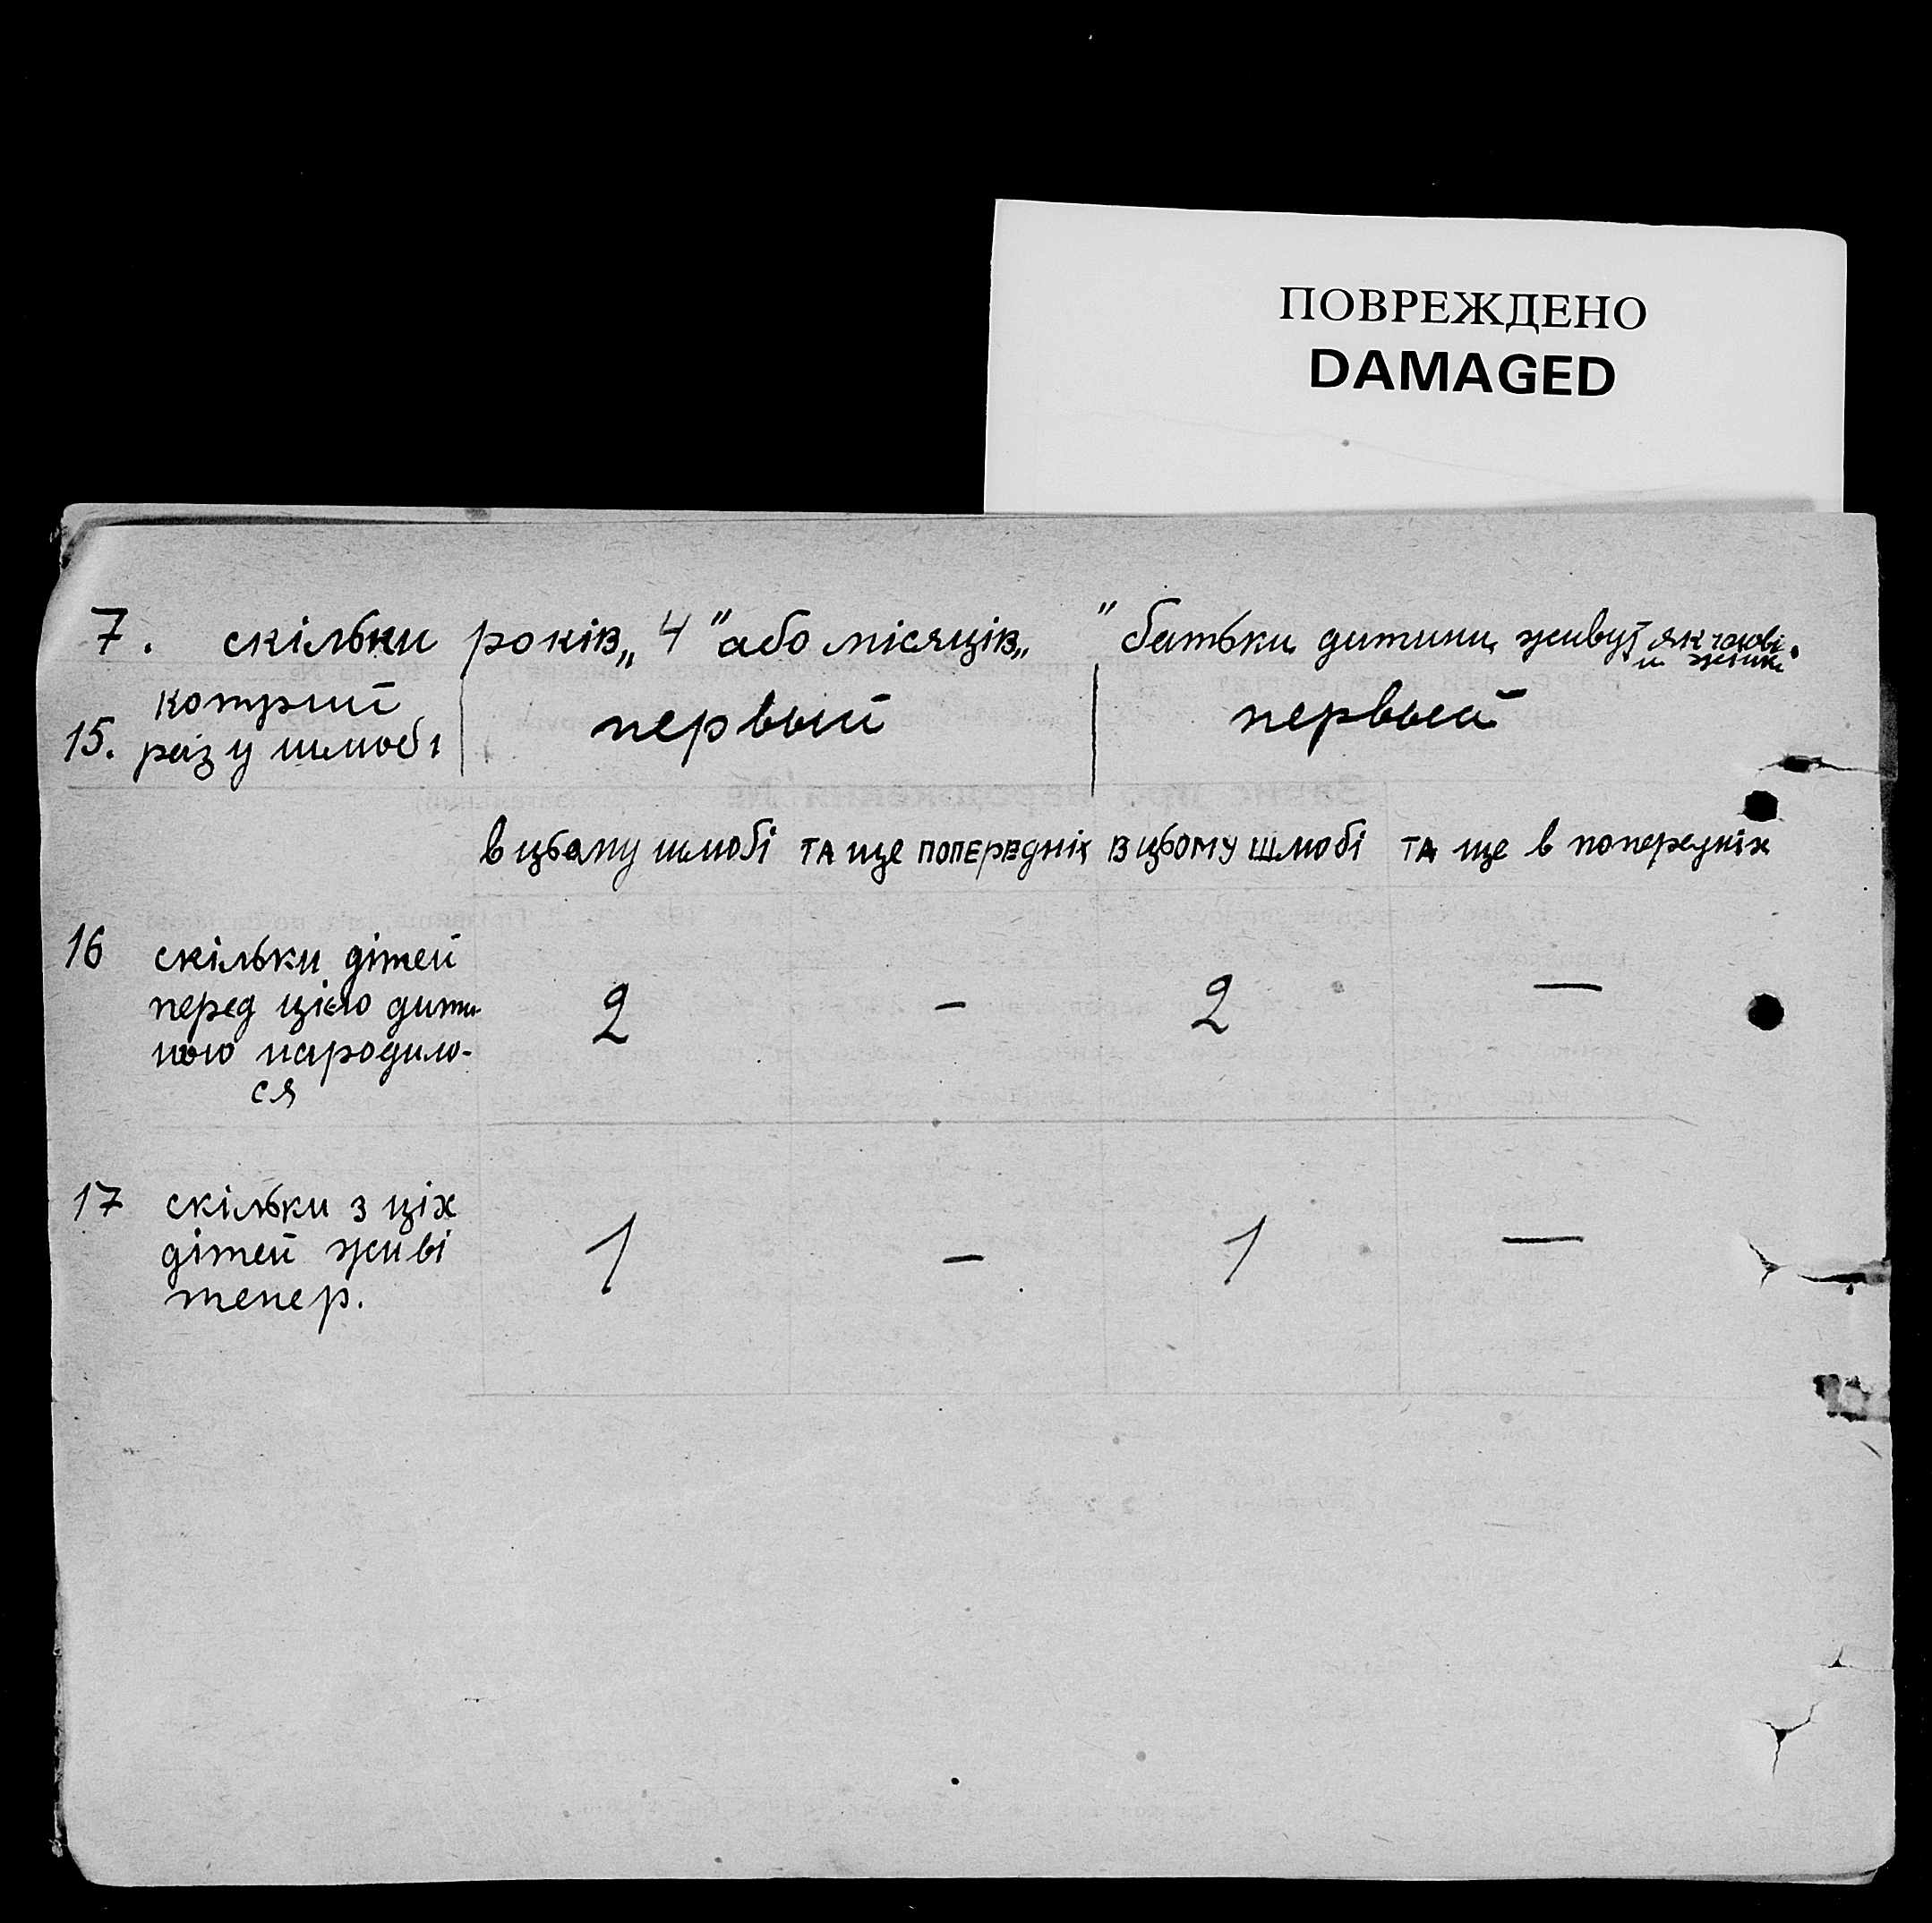 ПОВРЕЖДЕНО
DAMAGED
7. скільки років „ 4 " або місяців „ " батьки дитини живут як чолові.
и жінка
котрий
15. раз у шлюбі первый первый
в цьому шлюбі та ще попередніх в цьому шлюбі та ще в попередніх
16 скільки дітей
перед цією дити
ною народило-
ся
2 – 2 —
17 скільки з ціх
дітей живі
тепер.
1 – 1 —